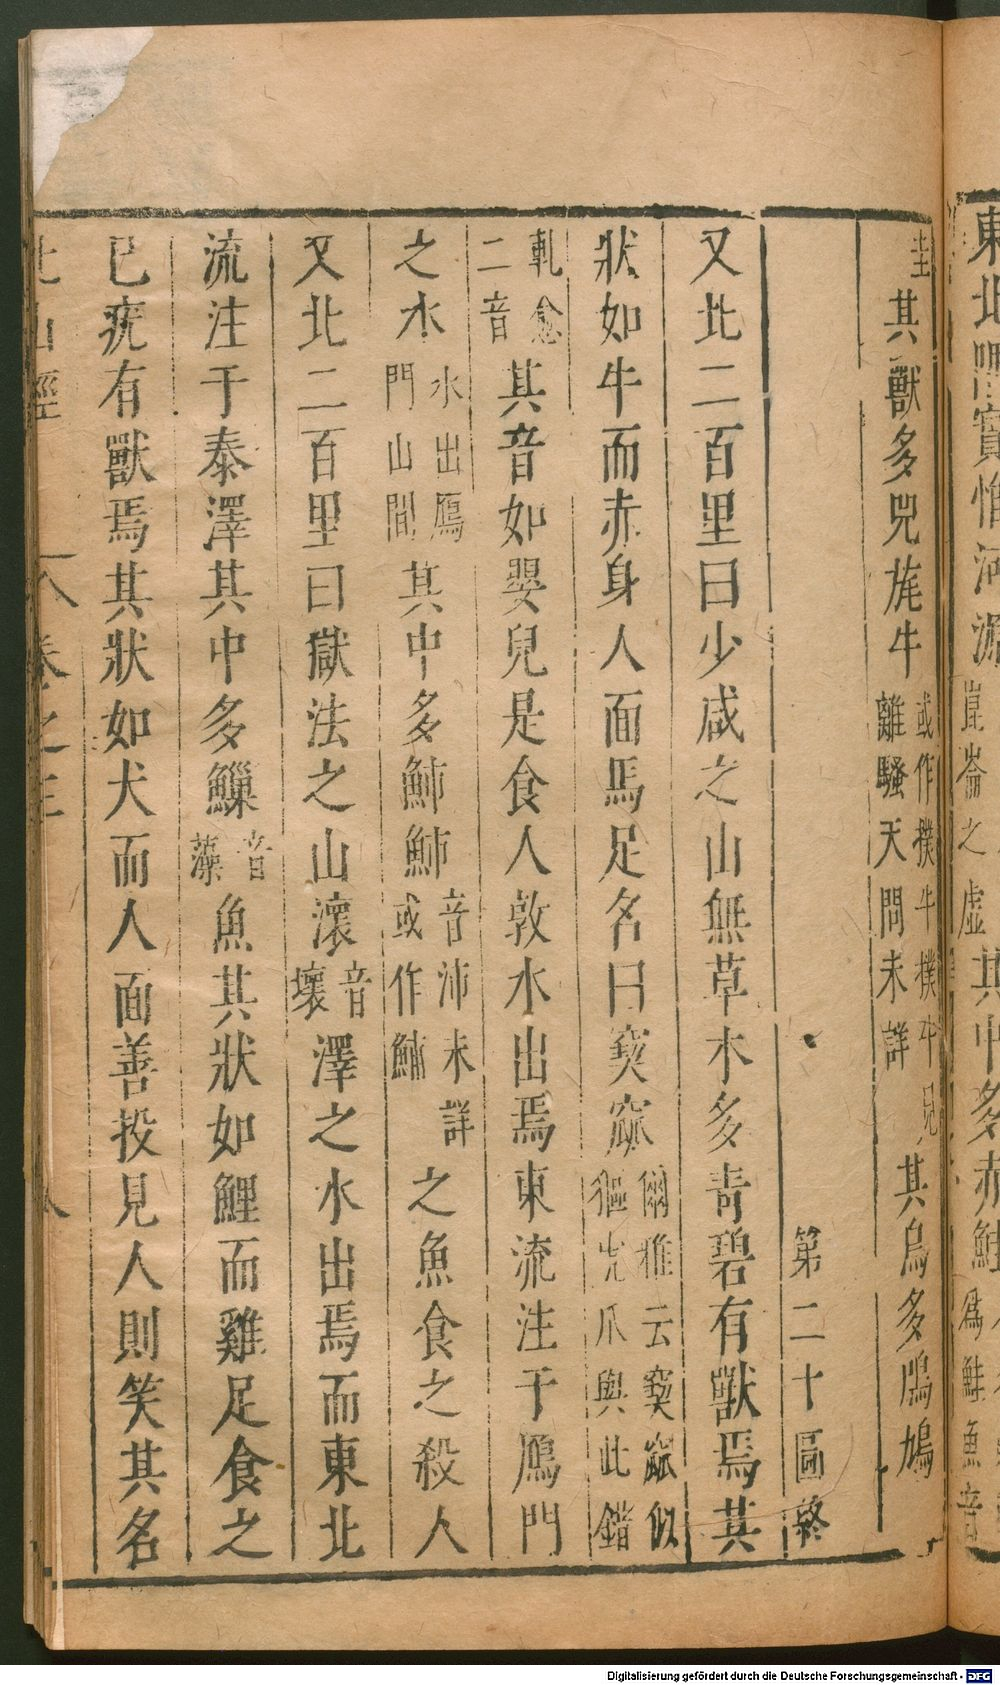 東北隅實惟河源崑崙之虛其中多赤鮭
為鮭魚音
圭其獸多兕旄牛或作樸牛樸牛見離騷天問未詳其鳥多鳲鳩
第二十圖終
又北二百里曰少咸之山無草木多青碧有獸焉其
狀如牛而赤身人面馬足名曰窫窳爾雅云窫窳似貙虎爪與此錯
軋愈二音其音如嬰兒是食人敦水出焉東流注于鴈門
之水水出鴈門山間其中多䰽䰽音沛未詳或作鯆之魚食之殺人
又北二百里曰獄法之山瀤音壞澤之水出焉而東北
流注于泰澤其中多鱳音藻魚其狀如鯉而雞足食之
已疣有獸焉其狀如犬而人面善投見人則笑其名
北山經 八 卷之三
Digitalisierung gefördert durch die Deutsche Forschungsgemeinschaft - DFG